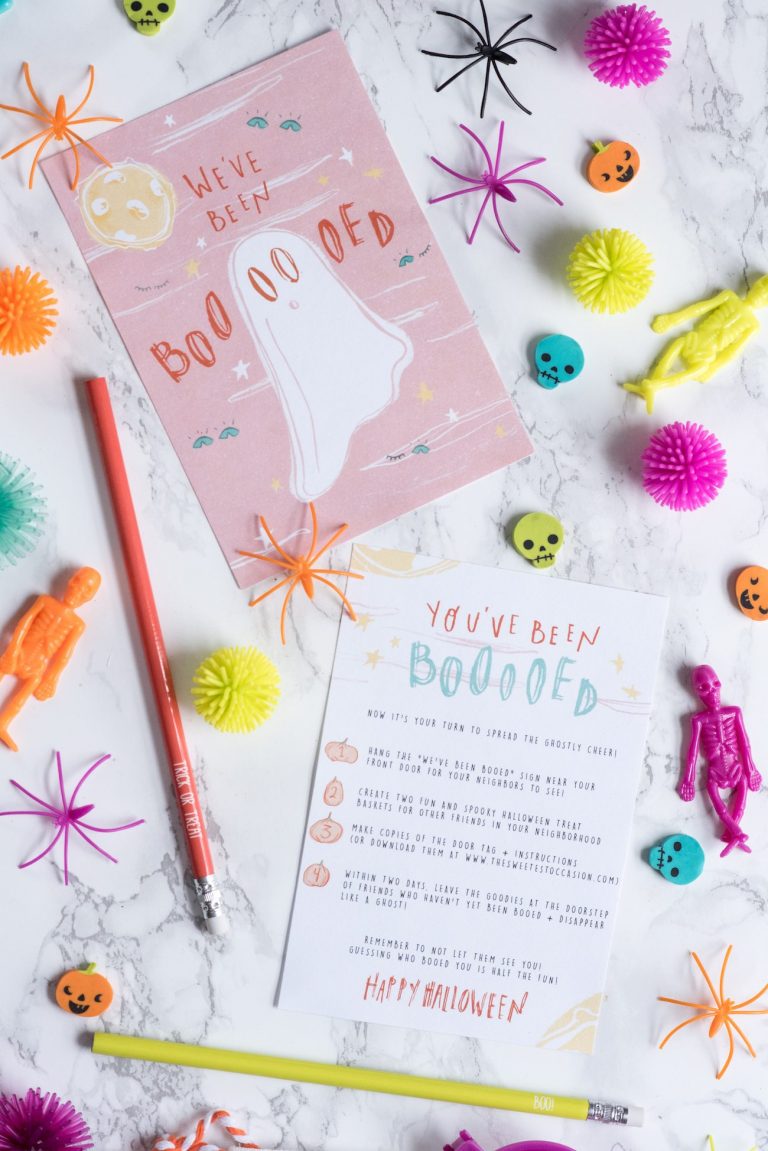 WE'VE
BEEN
BOOOOOED
TRICK OR TREAT
YOU'VE BEEN
BOOOOED
NOW IT'S YOUR TURN TO SPREAD THE GHOSTLY CHEER!
1 HANG THE "WE'VE BEEN BOOED" SIGN NEAR YOUR
FRONT DOOR FOR YOUR NEIGHBORS TO SEE!
2 CREATE TWO FUN AND SPOOKY HALLOWEEN TREAT
BASKETS FOR OTHER FRIENDS IN YOUR NEIGHBORHOOD
3 MAKE COPIES OF THE DOOR TAG + INSTRUCTIONS
(OR DOWNLOAD THEM AT WWW.THESWEETESTOCCASION.COM)
4 WITHIN TWO DAYS, LEAVE THE GOODIES AT THE DOORSTEP
OF FRIENDS WHO HAVEN'T YET BEEN BOOED + DISAPPEAR
LIKE A GHOST!
REMEMBER TO NOT LET THEM SEE YOU!
GUESSING WHO BOOED YOU IS HALF THE FUN!
HAPPY HALLOWEEN
BOO!